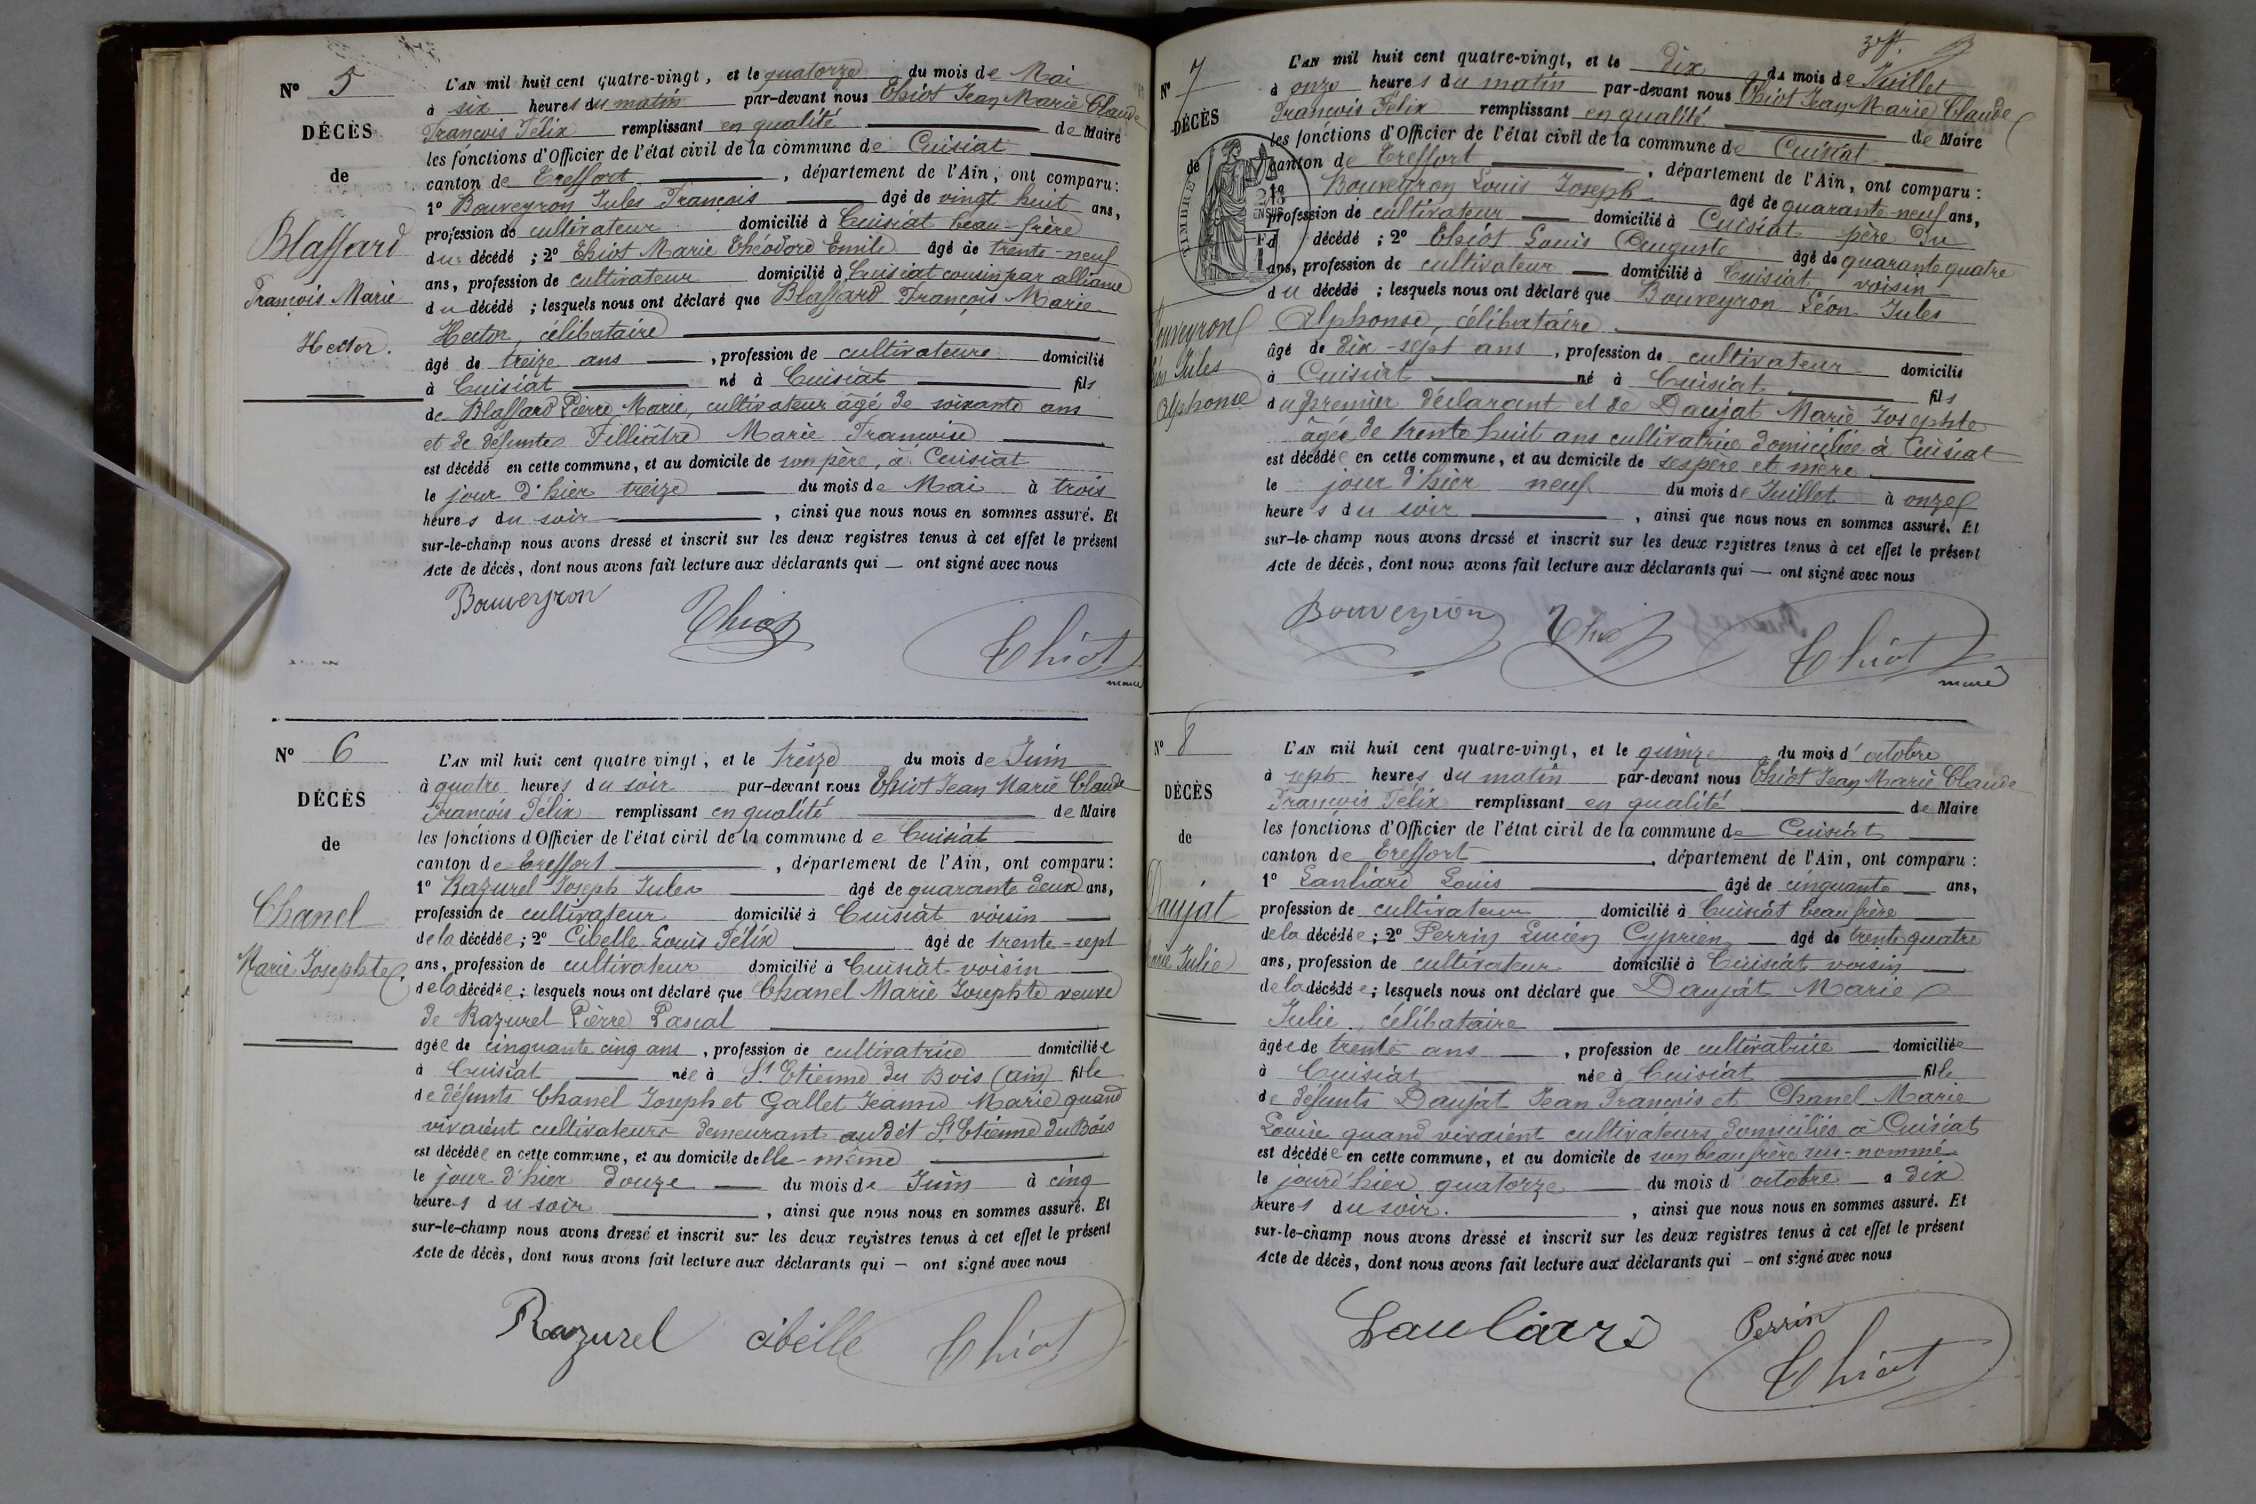 N° 5
DÉCÈS
de
Blaffard
François Marie
Hector.
L'AN mil huit cent quatre-vingt, et le quatorze du mois de Mai
à six heures du matin par-devant nous Chiot Jean Marie Claude
François Félix remplissant en qualité de Maire
les fonctions d'Officier de l'état civil de la commune de Cuisiat
canton de Treffort, département de l'Ain, ont comparu:
1° Bouveyron Jules François âgé de vingt huit ans,
profession de cultivateur domicilié à Cuisiat beau-frère
du décédé ; 2° Chiot Marie Théodore Emile âgé de trente-neuf
ans, profession de cultivateur domicilié à Cuisiat cousin par alliance
du décédé ; lesquels nous ont déclaré que Blaffard François Marie
Hector, célibataire
âgé de treize ans, profession de cultivateur domicilié
à Cuisiat né à Cuisiat fils
de Blaffard Pierre Marie, cultivateur âgé de soixante ans
et de défunte Filliâtre Marie Françoise
est décédé en cette commune, et au domicile de son père, à Cuisiat
le jour d'hier treize du mois de Mai à trois
heures du soir, ainsi que nous nous en sommes assuré. Et
sur-le-champ nous avons dressé et inscrit sur les deux registres tenus à cet effet le présent
Acte de décès, dont nous avons fait lecture aux déclarants qui — ont signé avec nous
Bouveyron Chiot Chiot
maire
N° 6
DÉCÈS
de
Chanel
Marie Josephte
L'AN mil huit cent quatre vingt, et le treize du mois de Juin
à quatre heures du soir par-devant nous Chiot Jean Marie Claude
François Félix remplissant en qualité de Maire
les fonctions d'Officier de l'état civil de la commune de Cuisiat
canton de Treffort, département de l'Ain, ont comparu:
1° Razurel Joseph Jules âgé de quarante deux ans,
profession de cultivateur domicilié à Cuisiat voisin
de la décédée ; 2° Cibelle Louis Félix âgé de trente-sept
ans, profession de cultivateur domicilié à Cuisiat voisin
de la décédée ; lesquels nous ont déclaré que Chanel Marie Josephte veuve
de Razurel Pierre Pascal
âgée de cinquante cinq ans, profession de cultivatrice domiciliée
à Cuisiat née à St Etienne du Bois (Ain) fille
de défunts Chanel Joseph et Gallet Jeanne Marie quand
vivaient cultivateurs demeurant au dit St Etienne du Bois
est décédée en cette commune, et au domicile delle-même
le jour d'hier douze du mois de Juin à cinq
heures du soir, ainsi que nous nous en sommes assuré. Et
sur-le-champ nous avons dressé et inscrit sur les deux registres tenus à cet effet le présent
Acte de décès, dont nous avons fait lecture aux déclarants qui — ont signé avec nous
Razurel cibelle Chiot
N° 7
DÉCÈS
de
Bouveyron
Léon Jules
Alphonse
TIMBRE
L'AN mil huit cent quatre-vingt, et le dix du mois de Juillet
à onze heures du matin par-devant nous Chiot Jean Marie Claude
François Félix remplissant en qualité de Maire
les fonctions d'Officier de l'état civil de la commune de Cuisiat
canton de Treffort, département de l'Ain, ont comparu:
1° Bouveyron Louis Joseph âgé de quarante-neuf ans,
profession de cultivateur domicilié à Cuisiat père du
décédé ; 2° Chiot Louis Auguste âgé de quarante quatre
ans, profession de cultivateur domicilié à Cuisiat voisin
du décédé ; lesquels nous ont déclaré que Bouveyron Léon Jules
Alphonse, célibataire
âgé de dix-sept ans, profession de cultivateur domicilié
à Cuisiat né à Cuisiat fils
du premier déclarant et de Daujat Marie Josephte
âgée de trente huit ans cultivatrice domiciliée à Cuisiat
est décédé en cette commune, et au domicile de ses père et mère
le jour d'hier neuf du mois de Juillet à onze
heures du soir, ainsi que nous nous en sommes assuré. Et
sur-le-champ nous avons dressé et inscrit sur les deux registres tenus à cet effet le présent
Acte de décès, dont nous avons fait lecture aux déclarants qui — ont signé avec nous
Bouveyron Chiot Chiot
maire
N° 8
DÉCÈS
de
Daujat
Marie Julie
L'AN mil huit cent quatre-vingt, et le quinze du mois d'octobre
à sept heures du matin par-devant nous Chiot Jean Marie Claude
François Félix remplissant en qualité de Maire
les fonctions d'Officier de l'état civil de la commune de Cuisiat
canton de Treffort, département de l'Ain, ont comparu:
1° Lauliard Louis âgé de cinquante ans,
profession de cultivateur domicilié à Cuisiat beau frère
de la décédée ; 2° Perrin Lucien Cyprien âgé de trente quatre
ans, profession de cultivateur domicilié à Cuisiat voisin
de la décédée ; lesquels nous ont déclaré que Daujat Marie
Julie, célibataire
âgée de trente ans, profession de cultivatrice domiciliée
à Cuisiat née à Cuisiat fille
de défunts Daujat Jean François et Chanel Marie
Louise quand vivaient cultivateurs domiciliés à Cuisiat
est décédée en cette commune, et au domicile de son beau frère sus-nommé
le jour d'hier quatorze du mois d'octobre à dix
heures du soir., ainsi que nous nous en sommes assuré. Et
sur-le-champ nous avons dressé et inscrit sur les deux registres tenus à cet effet le présent
Acte de décès, dont nous avons fait lecture aux déclarants qui — ont signé avec nous
Lauliard Perrin
Chiot